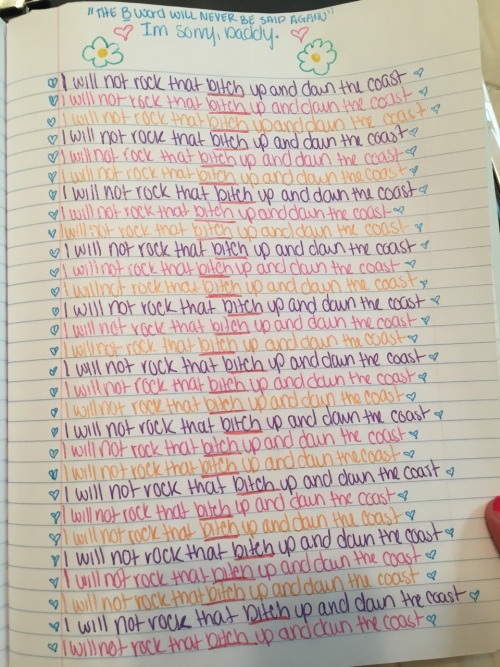 "THE B WORD WILL NEVER BE SAID AGAIN"
Im sorry, Daddy.
I will not rock that bitch up and down the coast
I will not rock that bitch up and down the coast
I will not rock that bitch up and down the coast
I will not rock that bitch up and down the coast
I will not rock that bitch up and down the coast
I will not rock that bitch up and down the coast
I will not rock that bitch up and down the coast
I will not rock that bitch up and down the coast
I will not rock that bitch up and down the coast
I will not rock that bitch up and down the coast
I will not rock that bitch up and down the coast
I will not rock that bitch up and down the coast
I will not rock that bitch up and down the coast
I will not rock that bitch up and down the coast
I will not rock that bitch up and down the coast
I will not rock that bitch up and down the coast
I will not rock that bitch up and down the coast
I will not rock that bitch up and down the coast
I will not rock that bitch up and down the coast
I will not rock that bitch up and down the coast
I will not rock that bitch up and down the coast
I will not rock that bitch up and down the coast
I will not rock that bitch up and down the coast
I will not rock that bitch up and down the coast
I will not rock that bitch up and down the coast
I will not rock that bitch up and down the coast
I will not rock that bitch up and down the coast
I will not rock that bitch up and down the coast
I will not rock that bitch up and down the coast